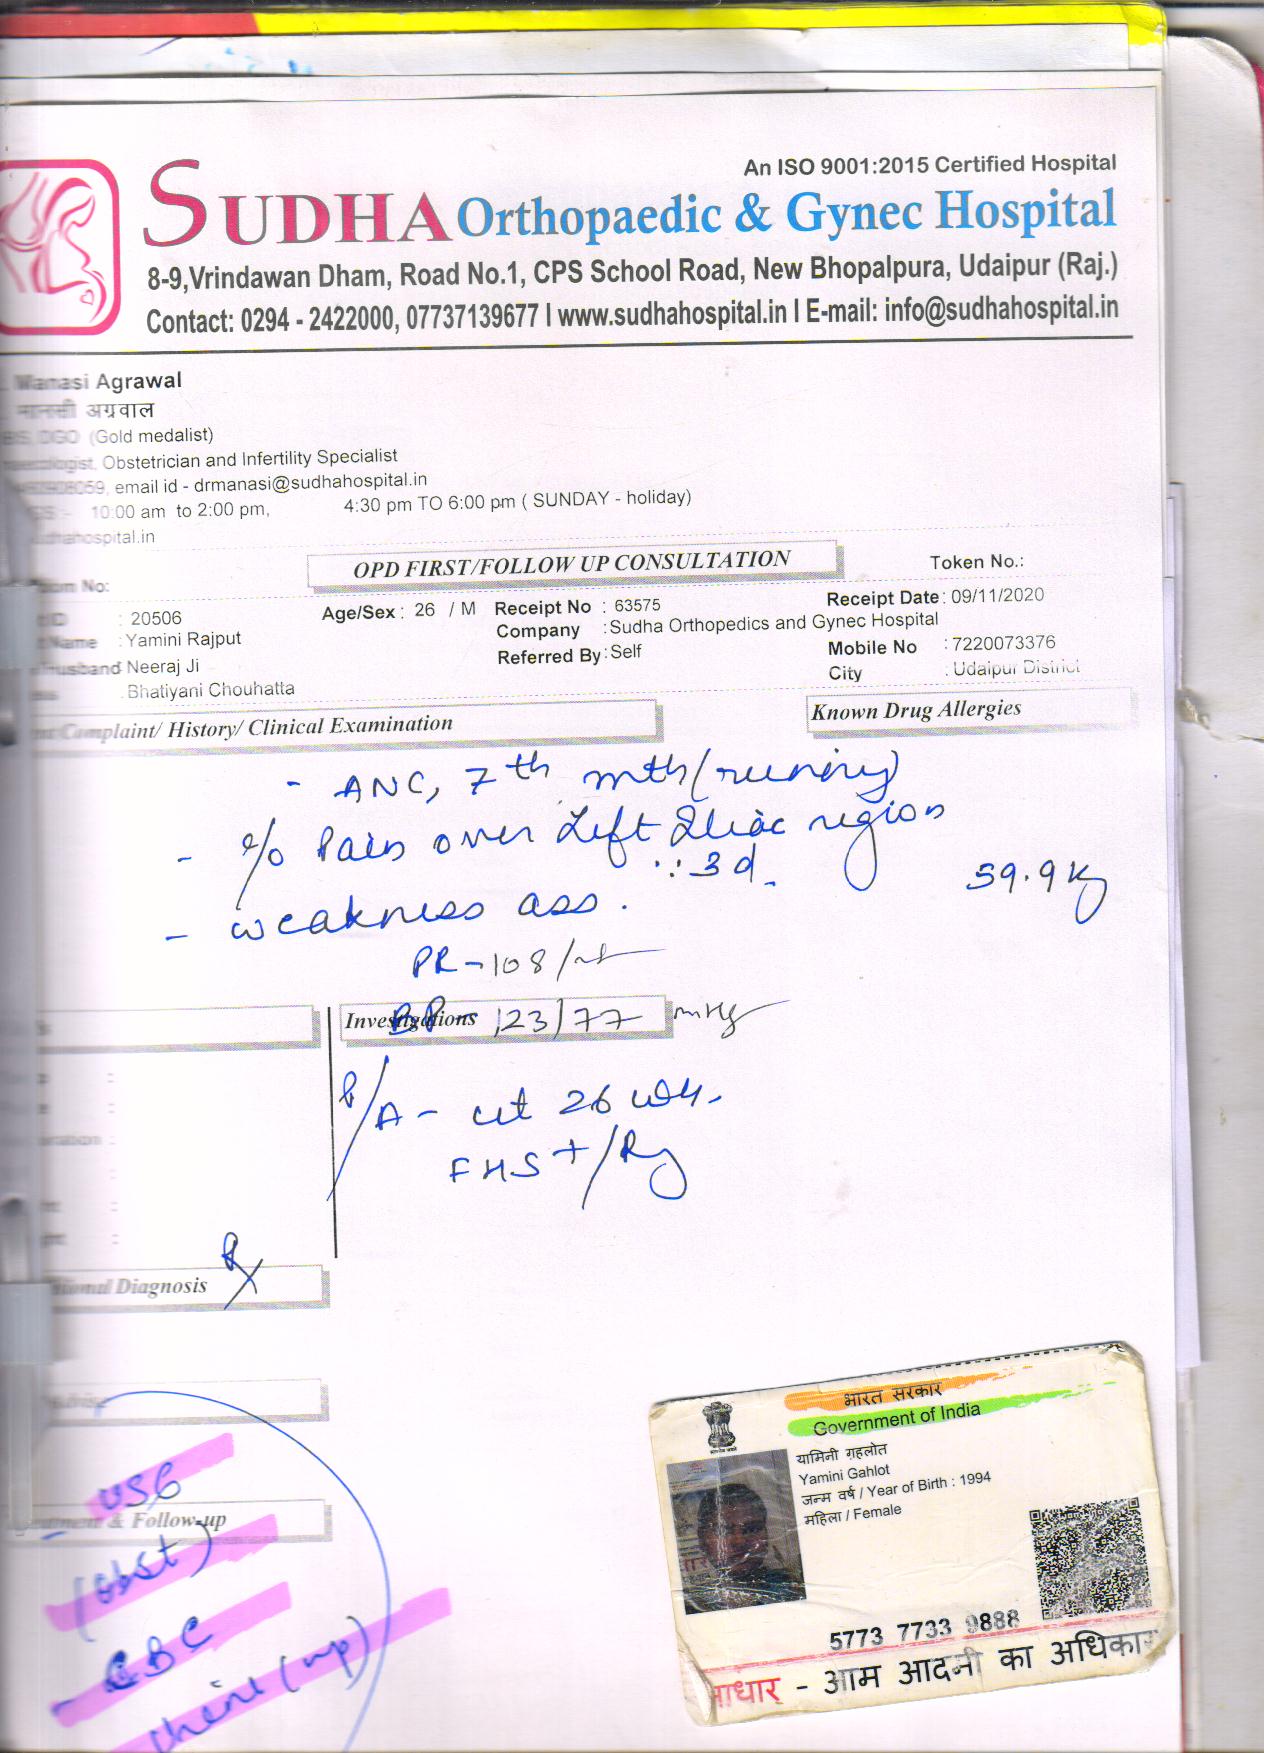 An ISO 9001:2015 Certified Hospital
SUDHA Orthopaedic & Gynec Hospital
8-9,Vrindawan Dham, Road No.1, CPS School Road, New Bhopalpura, Udaipur (Raj.)
Contact: 0294 - 2422000, 07737139677 I www.sudhahospital.in I E-mail: info@sudhahospital.in
Manasi Agrawal
मानसी अग्रवाल
DGO (Gold medalist)
Obstetrician and Infertility Specialist
email id - drmanasi@sudhahospital.in
10:00 am to 2:00 pm, 4:30 pm TO 6:00 pm ( SUNDAY - holiday)
OPD FIRST/FOLLOW UP CONSULTATION
Token No.:
No:
: 20506 Age/Sex : 26 / M Receipt No : 63575 Receipt Date : 09/11/2020
Name : Yamini Rajput Company : Sudha Orthopedics and Gynec Hospital
Husband Neeraj Ji Referred By : Self Mobile No : 7220073376
: Bhatiyani Chouhatta City : Udaipur District
Complaint/ History/ Clinical Examination
Known Drug Allergies
- ANC, 7th mth (running)
- c/o Pain over Left Iliac region
3d.
59.9 Kg
- weakness ass.
PR - 108/
Investigations
BP - 123/77 mmHg
P/A - ut 26 wk.
FHS +/Rg
Rx
Diagnosis
Advise
- USG
& Follow-up
(obst)
- CBC
भारत सरकार
Government of India
यामिनी गहलोत
Yamini Gahlot
जन्म वर्ष / Year of Birth : 1994
महिला / Female
5773 7733 9888
आधार - आम आदमी का अधिकार